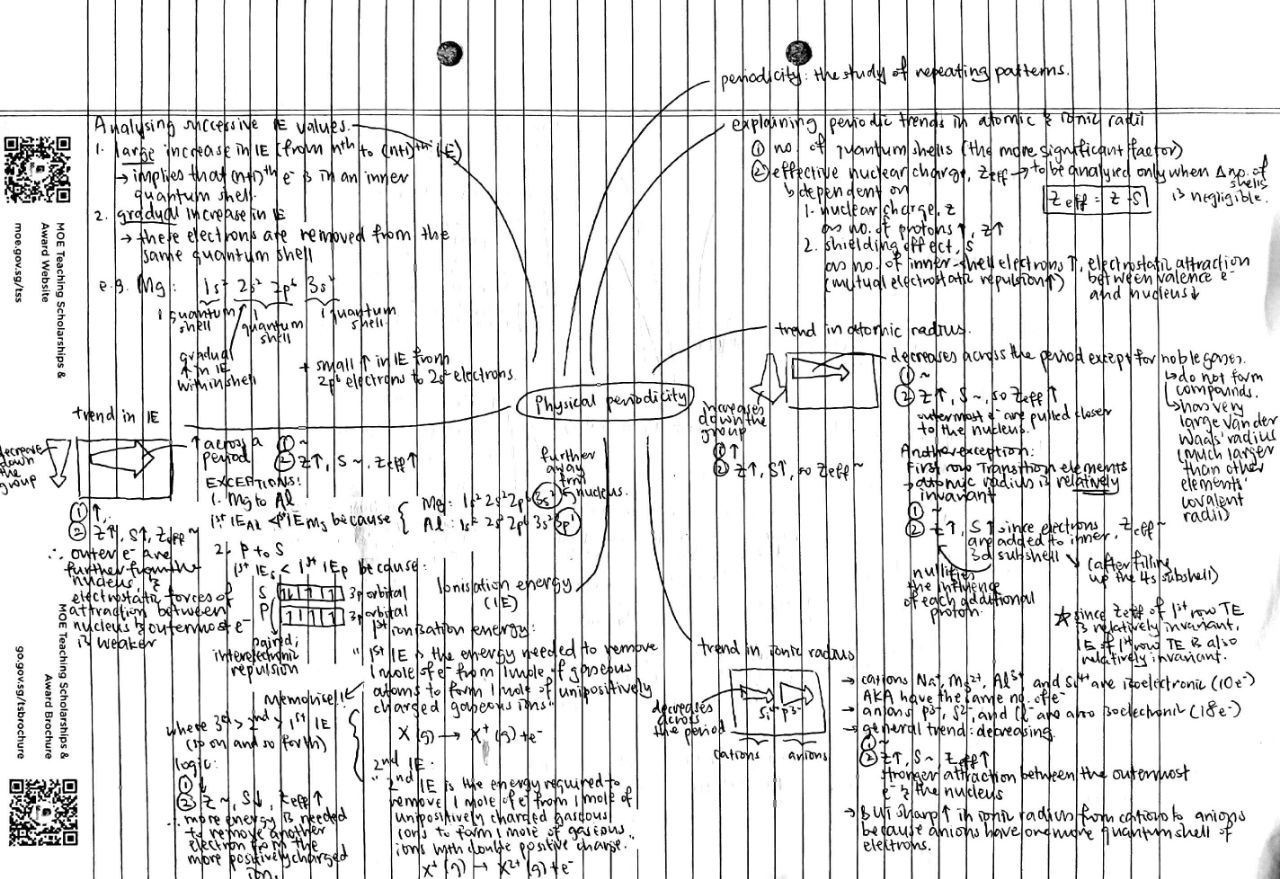 periodicity: the study of repeating patterns.
explaining periodic trends in atomic & ionic radii
① no. of quantum shells (the more significant factor)
② effective nuclear charge, Zeff → to be analysed only when Δ no. of shells is negligible.
↳ dependent on
Zeff = Z - S
1. nuclear charge, Z
as no. of protons ↑, Z↑
2. shielding effect, S
as no. of inner-shell electrons ↑, electrostatic attraction
(mutual electrostatic repulsion ↑)
between valence e⁻
and nucleus ↓
Analysing successive IE values.
1. large increase in IE (from nth to (n+1)th IE)
→ implies that (n+1)th e⁻ is in an inner
quantum shell.
2. gradual increase in IE
→ these electrons are removed from the
same quantum shell
e.g. Mg: 1s² 2s² 2p⁶ 3s²
1 quantum shell
1 quantum shell
1 quantum shell.
gradual
↑ in IE
within shell
+ small ↑ in IE from
2p⁶ electrons to 2s² electrons.
MOE Teaching Scholarships &
Award Website
moe.gov.sg/tss
MOE Teaching Scholarships &
Award Brochure
go.gov.sg/tsbrochure
Physical periodicity
trend in atomic radius.
increases
down the
group
① ↑
② Z↑, S↑, so Zeff ~
decreases across the period except for noble gases.
① ~
② Z↑, S ~, so Zeff ↑
outermost e⁻ are pulled closer
to the nucleus.
↳ do not form
compounds.
↳ has very
large Van der
Waals' radius
(much larger
than other
elements'
covalent
radii)
Another exception:
First row Transition elements
→ atomic radius is relatively
invariant
① ~
② Z↑, S↑ since electrons, Zeff ~
are added to inner
3d subshell
(after filling
up the 4s subshell)
nullifies
the influence
of each additional
proton.
☆ since Zeff of 1st row TE
is relatively invariant,
IE of 1st row TE is also
relatively invariant.
trend in IE
decrease
down
the
group
① ↑,
② Z↑, S↑, Zeff ~
∴ outer e⁻ are
further from the
nucleus &
electrostatic forces of
attraction between
nucleus & outermost e⁻
is weaker
↑ across a
period
① ~
② Z↑, S ~, Zeff ↑
EXCEPTIONS:
1. Mg to Al
1st IE Al < 1st IE Mg because
Mg: 1s² 2s² 2p⁶ 3s²
Al: 1s² 2s² 2p⁶ 3s² 3p¹
further
away
from
nucleus.
2. P to S
1st IEs < 1st IEp because:
S 3p orbital
P 3p orbital
paired;
interelectronic
repulsion
Ionisation energy
(IE)
1st ionisation energy:
"1st IE is the energy needed to remove
1 mole of e⁻ from 1 mole of gaseous
atoms to form 1 mole of unipositively
charged gaseous ions"
X (g) → X⁺ (g) + e⁻
Memorise!!
2nd IE:
"2nd IE is the energy required to
remove 1 mole of e⁻ from 1 mole of
unipositively charged gaseous
ions to form 1 mole of gaseous
ions with double positive charge."
X⁺ (g) → X²⁺ (g) + e⁻
where 3rd > 2nd > 1st IE
(so on and so forth)
logic:
① ↓
② Z ~, S↓, Zeff ↑
∴ more energy is needed
to remove another
electron from the
more positively charged
ion.
trend in ionic radius
decreases
across
the period
Si⁴⁺ P³⁻
cations anions
→ cations Na⁺, Mg²⁺, Al³⁺ and Si⁴⁺ are isoelectronic (10e⁻)
AKA have the same no. of e⁻
→ anions P³⁻, S²⁻, and Cl⁻ are also isoelectronic (18e⁻)
→ general trend: decreasing.
① ~
② Z↑, S ~ Zeff ↑
stronger attraction between the outermost
e⁻ & the nucleus
→ But sharp ↑ in ionic radius from cations to anions
because anions have one more quantum shell of
electrons.